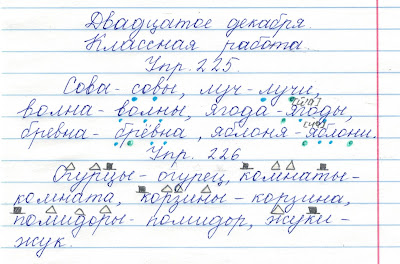 Двадцатое декабря.
Классная работа.
Упр. 225.
Сова - совы, луч - лучи,
волна - волны, ягода - ягоды,
бревна - брёвна, яблоня - яблони.
Упр. 226
Огурцы - огурец, комнаты -
комната, корзины - корзина,
помидоры - помидор, жуки -
жук.